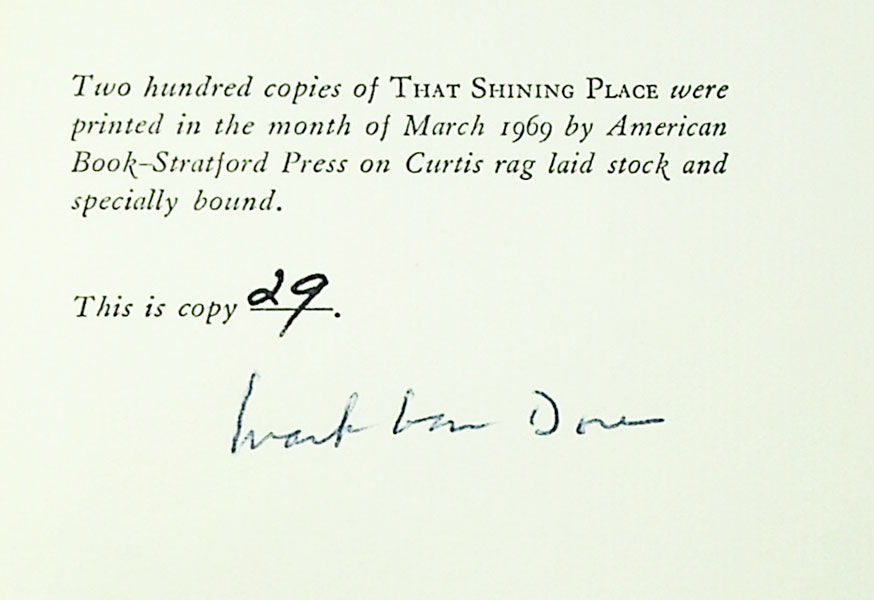 Two hundred copies of THAT SHINING PLACE were
printed in the month of March 1969 by American
Book-Stratford Press on Curtis rag laid stock and
specially bound.
This is copy 29.
Mark Van Doren